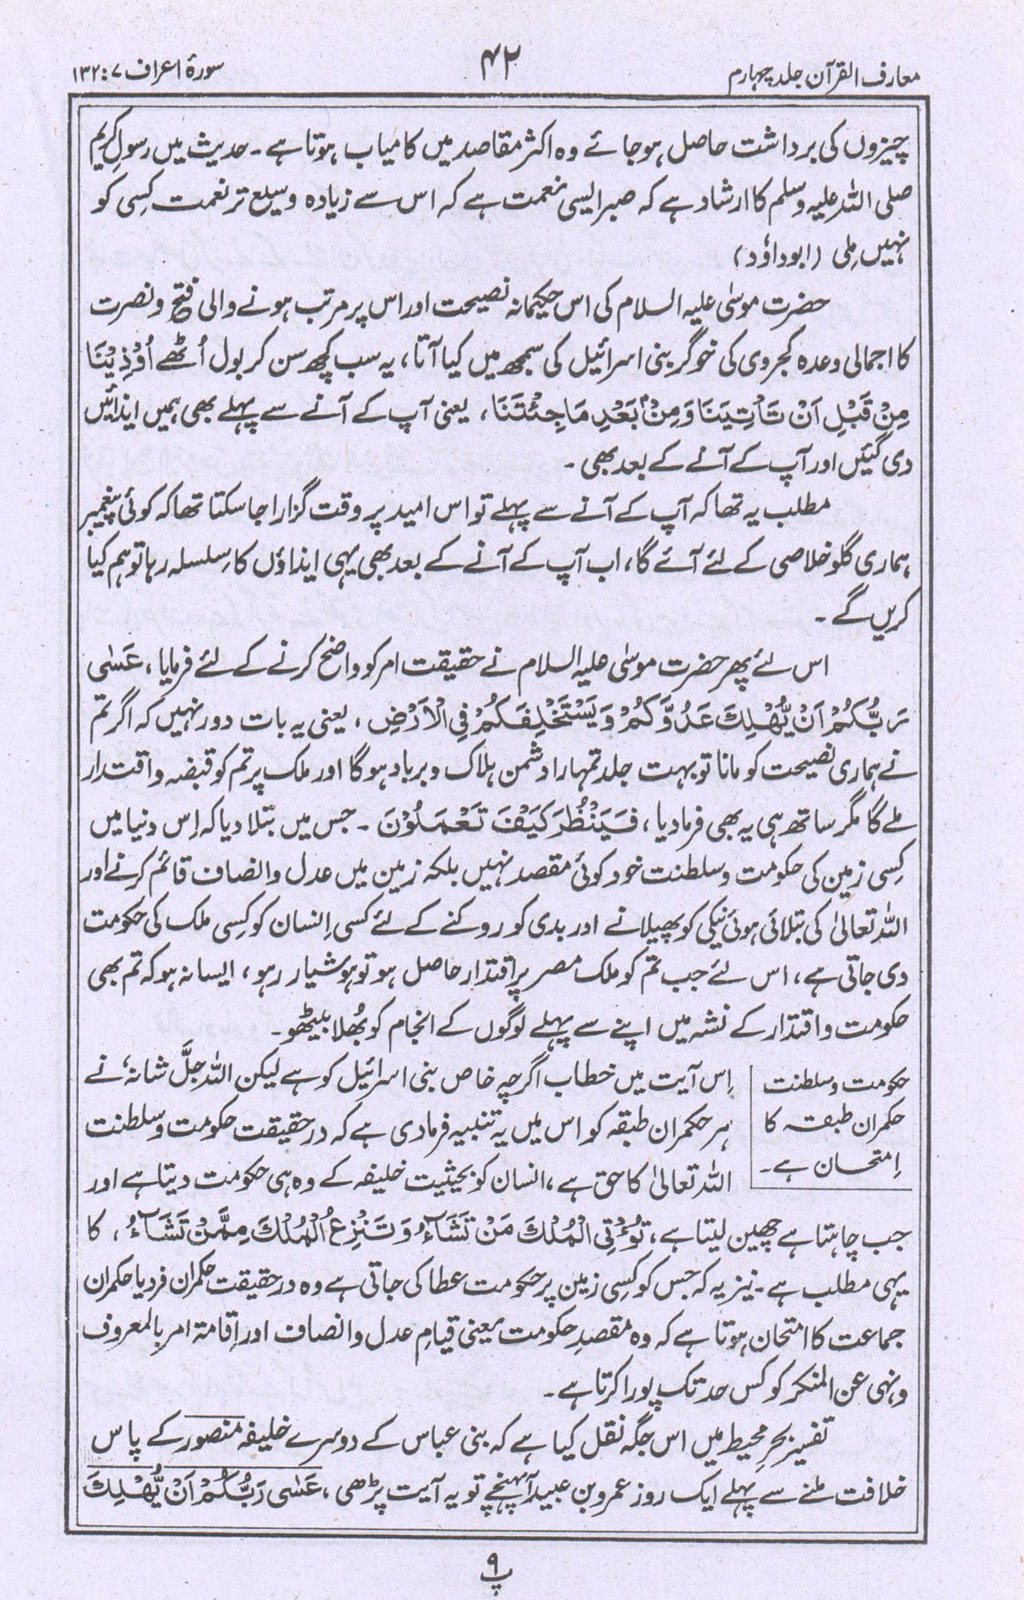 معارف القرآن جلد چہارم
۴۲
سورۂ اعراف ۷: ۱۳۲
چیزوں کی برداشت حاصل ہو جائے وہ اکثر مقاصد میں کامیاب ہوتا ہے۔ حدیث میں رسول کریم
صلی اللہ علیہ وسلم کا ارشاد ہے کہ صبر ایسی نعمت ہے کہ اس سے زیادہ وسیع تر نعمت کسی کو
نہیں ملی (ابوداؤد)
حضرت موسٰی علیہ السلام کی اس حکیمانہ نصیحت اور اس پر مرتب ہونے والی فتح و نصرت
کا اجمالی وعدہ کجروی کی خوگر بنی اسرائیل کی سمجھ میں کیا آتا، یہ سب کچھ سن کر بول اُٹھے اُوْذِیْنَا
مِنْ قَبْلِ اَنْ تَاْتِیَنَا وَمِنْۢ بَعْدِ مَاجِئْتَنَا، یعنی آپ کے آنے سے پہلے بھی ہمیں ایذائیں
دی گئیں اور آپ کے آنے کے بعد بھی۔
مطلب یہ تھا کہ آپ کے آنے سے پہلے تو اس امید پر وقت گزارا جا سکتا تھا کہ کوئی پیغمبر
ہماری گلو خلاصی کے لئے آئے گا، اب آپ کے آنے کے بعد بھی یہی ایذاؤں کا سِلسلہ رہا تو ہم کیا
کریں گے۔
اس لئے پھر حضرت موسٰی علیہ السلام نے حقیقت امر کو واضح کرنے کے لئے فرمایا، عَسٰی
رَبُّکُمْ اَنْ یُّھْلِکَ عَدُوَّکُمْ وَیَسْتَخْلِفَکُمْ فِی الْاَرْضِ، یعنی یہ بات دور نہیں کہ اگر تم
نے ہماری نصیحت کو مانا تو بہت جلد تمہارا دشمن ہلاک و برباد ہوگا اور ملک پر تم کو قبضہ و اقتدار
ملے گا مگر ساتھ ہی یہ بھی فرما دیا، فَیَنْظُرَ کَیْفَ تَعْمَلُوْنَ۔ جس میں بتلا دیا کہ اِس دنیا میں
کِسی زمین کی حکومت و سلطنت خود کوئی مقصد نہیں بلکہ زمین میں عدل و انصاف قائم کرنے اور
اللہ تعالیٰ کی بتلائی ہوئی نیکی کو پھیلانے اور بدی کو روکنے کے لئے کسی اِنسان کو کِسی ملک کی حکومت
دی جاتی ہے، اس لئے جب تم کو ملک مصر پر اِقتدار حاصل ہو تو ہوشیار رہو، ایسا نہ ہو کہ تم بھی
حکومت و اقتدار کے نشہ میں اپنے سے پہلے لوگوں کے انجام کو بُھلا بیٹھو۔
حکومت و سلطنت
حکمران طبقہ کا
اِمتحان ہے۔
اِس آیت میں خطاب اگرچہ خاص بنی اسرائیل کو ہے لیکن اللہ جلَّ شانہٗ نے
ہر حکمران طبقہ کو اس میں یہ تنبیہ فرما دی ہے کہ درحقیقت حکومت و سلطنت
اللہ تعالیٰ کا حق ہے، انسان کو بحیثیت خلیفہ کے وہ ہی حکومت دیتا ہے اور
جب چاہتا ہے چھین لیتا ہے، تُؤْتِی الْمُلْکَ مَنْ تَشَآءُ وَتَنْزِعُ الْمُلْکَ مِمَّنْ تَشَآءُ، کا
یہی مطلب ہے۔ نیز یہ کہ جس کو کِسی زمین پر حکومت عطا کی جاتی ہے وہ درحقیقت حکمران فرد یا حکمران
جماعت کا امتحان ہوتا ہے کہ وہ مقصدِ حکومت یعنی قیامِ عدل و انصاف اور اِقامۃ امر بالمعروف
و نہی عن المنکر کو کس حد تک پورا کرتا ہے۔
تفسیر بحرِ محیط میں اس جگہ نقل کیا ہے کہ بنی عباس کے دوسرے خلیفہ منصور کے پاس
خلافت ملنے سے پہلے ایک روز عمرو بن عبید آ پہنچے تو یہ آیت پڑھی، عَسٰی رَبُّکُمْ اَنْ یُّھْلِکَ
۹
پ